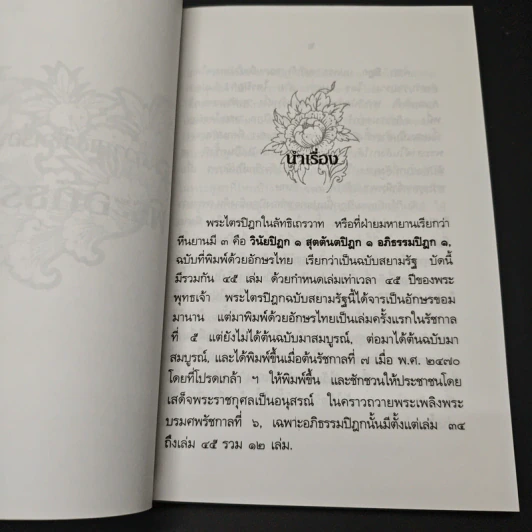 นำเรื่อง
พระไตรปิฎกในลัทธิเถรวาท หรือที่ฝ่ายมหายานเรียกว่า
หีนยานมี ๓ คือ วินัยปิฎก ๑ สุตตันตปิฎก ๑ อภิธรรมปิฎก ๑,
ฉบับที่พิมพ์ด้วยอักษรไทย เรียกว่าเป็นฉบับสยามรัฐ บัดนี้
มีรวมกัน ๔๕ เล่ม ด้วยกำหนดเล่มเท่าเวลา ๔๕ ปีของพระ
พุทธเจ้า พระไตรปิฎกฉบับสยามรัฐนี้ได้จารเป็นอักษรขอม
มานาน แต่มาพิมพ์ด้วยอักษรไทยเป็นเล่มครั้งแรกในรัชกาล
ที่ ๕ แต่ยังไม่ได้ต้นฉบับมาสมบูรณ์, ต่อมาได้ต้นฉบับมา
สมบูรณ์, และได้พิมพ์ขึ้นเมื่อต้นรัชกาลที่ ๗ เมื่อ พ.ศ. ๒๔๗๐
โดยที่โปรดเกล้า ฯ ให้พิมพ์ขึ้น และชักชวนให้ประชาชนโดย
เสด็จพระราชกุศลเป็นอนุสรณ์ ในคราวถวายพระเพลิงพระ
บรมศพรัชกาลที่ ๖, เฉพาะอภิธรรมปิฎกนั้นมีตั้งแต่เล่ม ๓๔
ถึงเล่ม ๔๕ รวม ๑๒ เล่ม.